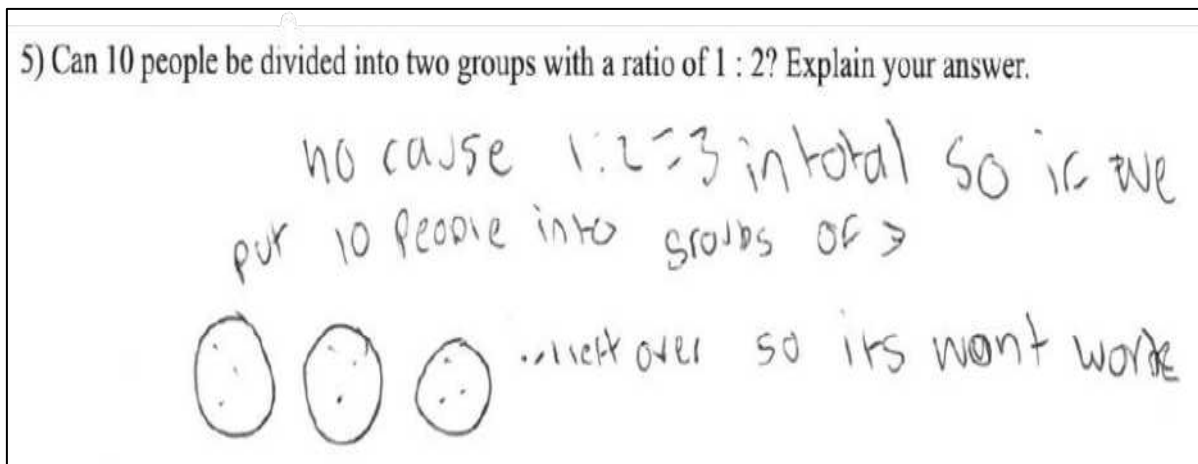 5) Can 10 people be divided into two groups with a ratio of 1 : 2? Explain your answer.
no cause 1:2=3 in total so if we
put 10 people into groups of 3
..1 left over so its wont work